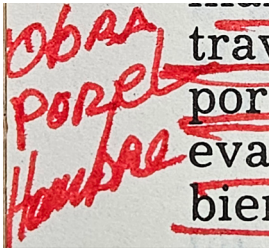 Obra
por el
Hombre
trav
por
eva
bien